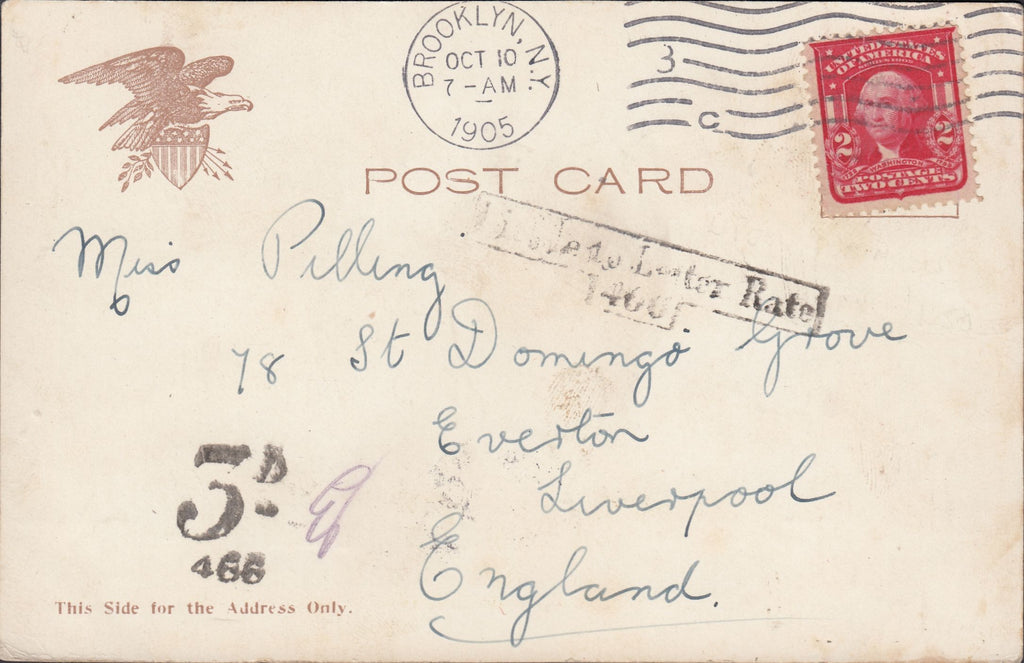 BROOKLYN, N.Y.
OCT 10
7-AM
1905
3
C
UNITED STATES
OF AMERICA
SERIES 1902
2 2
WASHINGTON
POSTAGE
TWO CENTS
POST CARD
Letter Rate
466
Miss Pilling
78 St Domingo Grove
Everton
Liverpool
England.
3D
466
This Side for the Address Only.